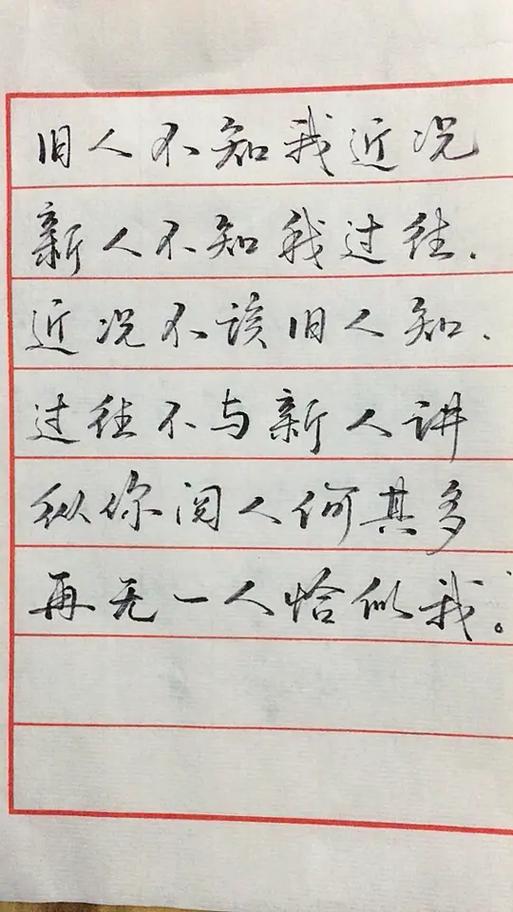 旧人不知我近况
新人不知我过往.
近况不该旧人知.
过往不与新人讲
纵你阅人何其多
再无一人恰似我。